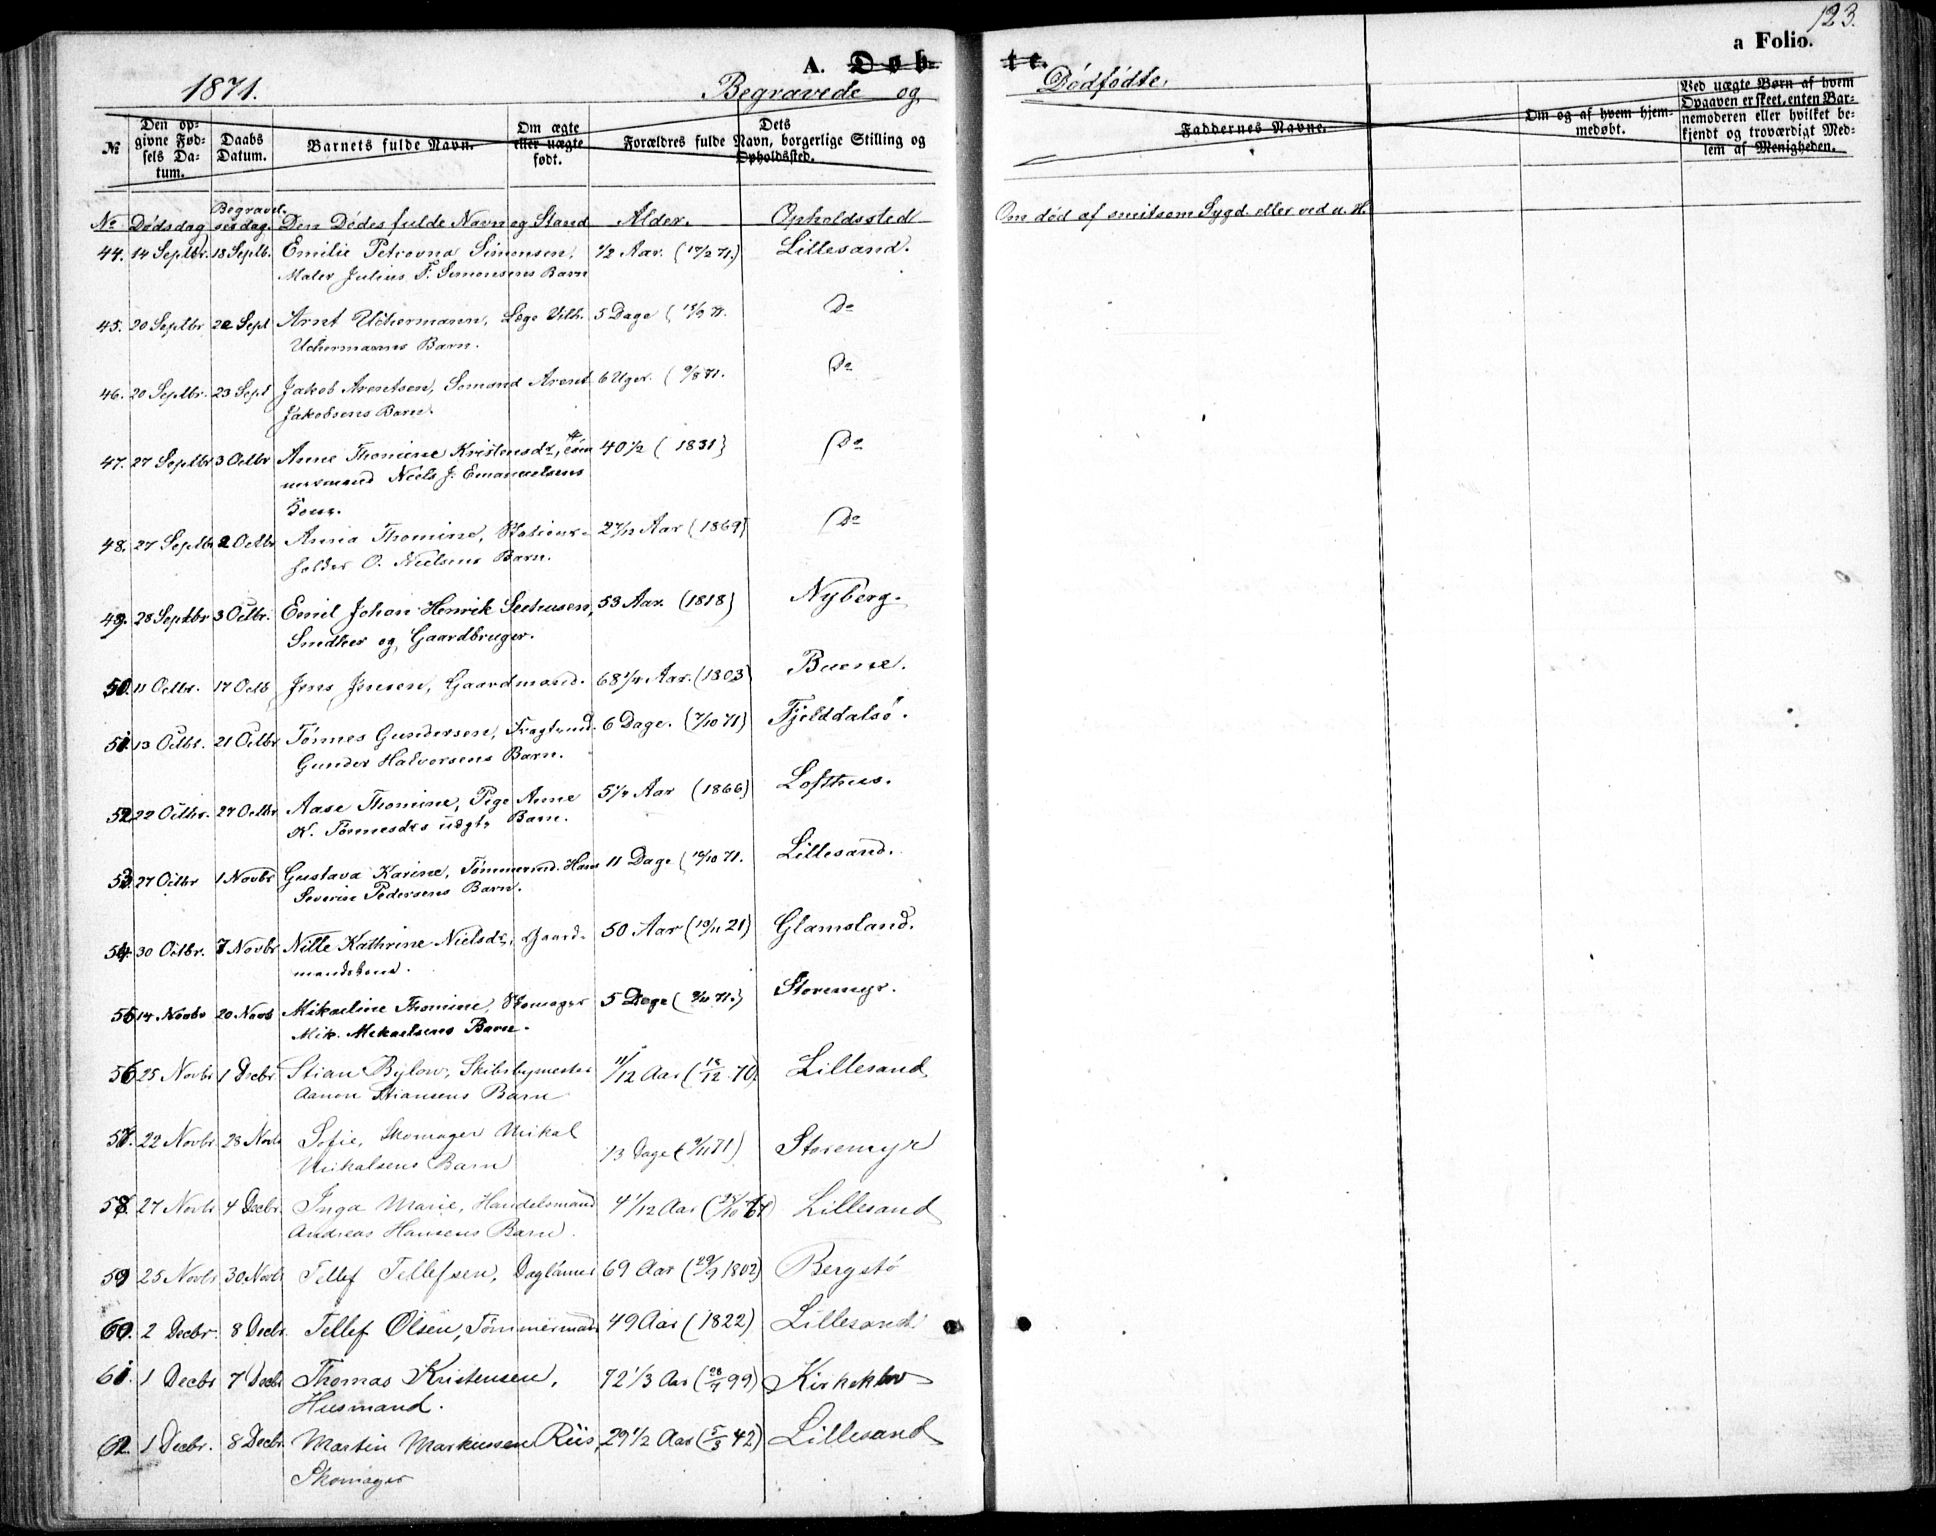 123.
a Folio.
A. Døb-
te.
1871.
Begravede og
Dødfødte.
№
Den op-
givne Fød-
sels Da-
tum.
Daabs
Datum.
Barnets fulde Navn.
Om ægte
eller uægte
født.
Dets
Forældres fulde Navn, borgerlige Stilling og
Opholdssted.
Faddernes Navne.
Om og af hvem hjem-
medøbt.
Ved uægte Børn af hvem
Opgaven er skeet, enten Bar-
nemoderen eller hvilket be-
kjendt og troværdigt Med-
lem af Menigheden.
No Dødsdag Begravel-
sesdag. Den Dødes fulde Navn og Stand Alder. Opholdssted
Om død af smitsom Sygd. eller ved u. H.
44. 14 Septbr. 18 Septb. Emilie Petrovna Simonsen, 1/2 Aar. (17/2 71.) Lillesand.
Maler Julius F. Simonsens Barn
45. 20 Septbr 22 Sept Arnt Uchermann, Læge Vilh. 5 Dage (15/9 71. Do
Uchermanns Barn.
46. 20 Septbr. 23 Sept Jakob Arentsen, Sømand Arent 6 Uger. (9/8 71. Do
Jakobsens Barn.
47. 27 Septbr 3 Octbr Anne Thomine Kristensdr, Töm 40 1/2 (1831) Do
mermand Niels J. Emanuelsens
Kone.
48. 27 Septbr 2 Octbr Anna Thomine, Stations- 2 7/12 Aar (1869) Do
holder O. Nielsens Barn.
49. 28 Septbr 3 Octbr. Emil Johan Henrik Seehusen, 53 Aar. (1818) Nyberg.
Snedker og Gaardbruger.
50. 11 Octbr. 17 Octb Jens Jensen, Gaardmand. 68 1/4 Aar. (1803)
51. 13 Octbr. 21 Octbr Tönnes Gundersen, Fragtmd. 6 Dage. (7/10 71) Fjelddalsö.
Gunder Halvorsens Barn.
52. 22 Octbr. 27 Octbr Aase Thomine, Pige Anne 5 1/4 Aar (1866) Lofthus.
K. Tönnesdrs uægte Barn.
53. 27 Octbr 1 Novbr Gustava Karine, Tömmermd. Hans 11 Dage (16/10 71. Lillesand.
Severin Pedersens Barn.
54. 30 Octbr. 7 Novbr Nille Kathrine Nielsdr, Gaard- 50 Aar (10/11 21) Glamsland.
mandskone.
55 14 Novbr 20 Novb Mikaeline Thomine, Skomager 5 Dage (9/11 71.) Storemyr.
Mik. Mikaelsens Barn.
56 25 Novbr 1 Decbr Stian Bylow, Skibsbymester 11/12 Aar (18/12 70) Lillesand
Aanon Stiansens Barn
57. 22 Novbr 28 Novb Sofie, Skomager Mikal 13 Dage (9/11 71) Storemyr
Mikalsens Barn
58. 27 Novbr 4 Decbr. Inga Marie, Handelsmand 4 1/12 Aar Lillesand
Andreas Hansens Barn.
59 25 Novbr 30 Novb Tellef Tellefsen, Daglönner 69 Aar (29/9 1802) Bergstö
60. 2 Decbr. 8 Decbr. Tellef Olsen, Tömmermand 49 Aar (1822) Lillesand.
61. 1 Decbr 7 Decb Thomas Kristensen, 72 1/3 Aar (28/7 99)
Husmand.
62. 1 Decbr. 8 Decbr. Martin Markussen Riis, 29 1/2 Aar (5/3 42) Lillesand
Skomager